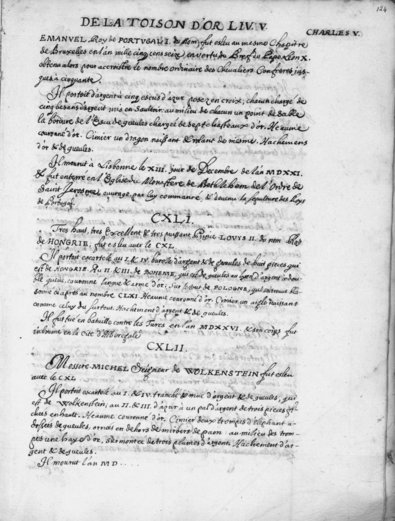 124
DE LA TOISON D'OR LIV. V.
CHARLES V.
EMANUEL Roy de PORTUGAL I. du Nom, fut esleu au mesme Chapitre
de Bruxelles en l'an mille cincq cens seize, en vertu du Bref du Pape Leon X.
obtenu alors pour accroistre le nombre ordinaire des Chevaliers Confreres jus-
ques a cincquante.
Il portoit d'argent a cinq escus d'azur posez en croix, chacun chargé de
cinq besans d'argent mis en Saultoir au milieu de chacun un point de Sable
la bordure de l'Escu de gueules chargée de sept chasteaux d'or. Heaume
couronné d'or. Cimier un dragon naissant de mesme. Hachemens
d'or & de gueules.
Il mourut a Lisbonne le XIII. jour de Decembre de l'an MDXXI.
& fut enterré en l'Eglise du Monastere de Bethlehem de l'Ordre de
Saint Jerosme, ouvrage par luy commancé, & devenu la sepulture des Roys
de Portugal.
CXLI.
Tres hault, tres Excellent & tres puissant Prince LOUYS II. du nom Roy
de HONGRIE, fut esleu avec le CXL
Il portoit escartelé au I. & IV. burelé d'argent & de gueules de huit pieces qui
est de HONGRIE. Au II. & III. de BOHEME, qui est de gueules au lyon d'argent
couronné, langué & armé d'or. Sur le tout de POLOGNE,
au nombre CLXI. Heaume couronné d'or. Cimier un aigle naissant
comme celuy du surtout. Hachemens d'argent & de gueules.
Il fut tué en bataille contre les Turcs en l'an MDXXVI. & son corps fut
inhumé en la Cité d'Alberegale.
CXLII.
Messire MICHEL Seigneur de WOLKENSTEIN fut esleu
avec le CXL
Il portoit escartelé au I. & IV. tranché nuée d'argent & de gueules, qui
est de Wolkenstein, au II. & III. d'azur a un pal d'argent de trois pieces
en hault. Heaume couronné d'or. Cimier deux trompes d'Elephant
de gueules, ornées en dehors de miroirs de paon, au milieu des trom-
pes une d'or, sommée de trois plumes d'argent. Hachemens d'ar-
gent & de gueules.
Il mourut l'an MD...